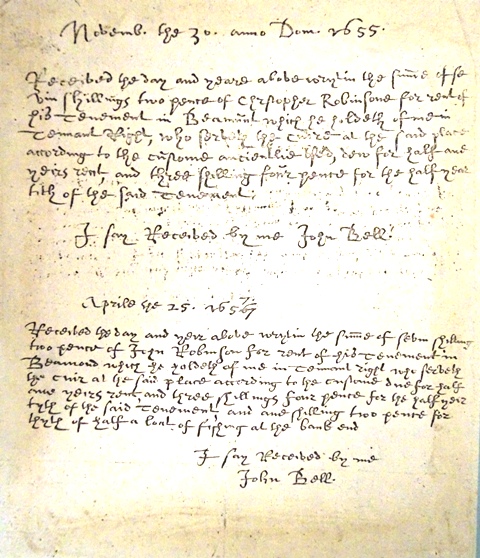 Novemb. the 30. anno Dom. 1655.
Received the day and yeare above wrytin the sume of se
vin shillings two pence of Chrstopher Robinsone for rent of
his Tenement in Beamont which he holdeth of me in
Tennant Right, who serveth the Cuire at the said place
according to the custome ancientlie dew for half ane
yeirs rent, and three shilling four pence for the half year
tith of the said Tenement.
I say Received by me John Bell.
Aprile the 25. 165
Received the day and yeir above wrytin the sume of sevin shilling
two pence of John Robinson for rent of his Tenement in
Beamond which he holdeth of me in Tennant right who serveth
the Cuir at the said place according to the custome due for half
ane yeirs rent, and three shillings four pence for the half year
tyth of the said Tenement, and ane shilling two pence for
thyth of half a boat of fishing at the bank end
I say Received by me
John Bell.